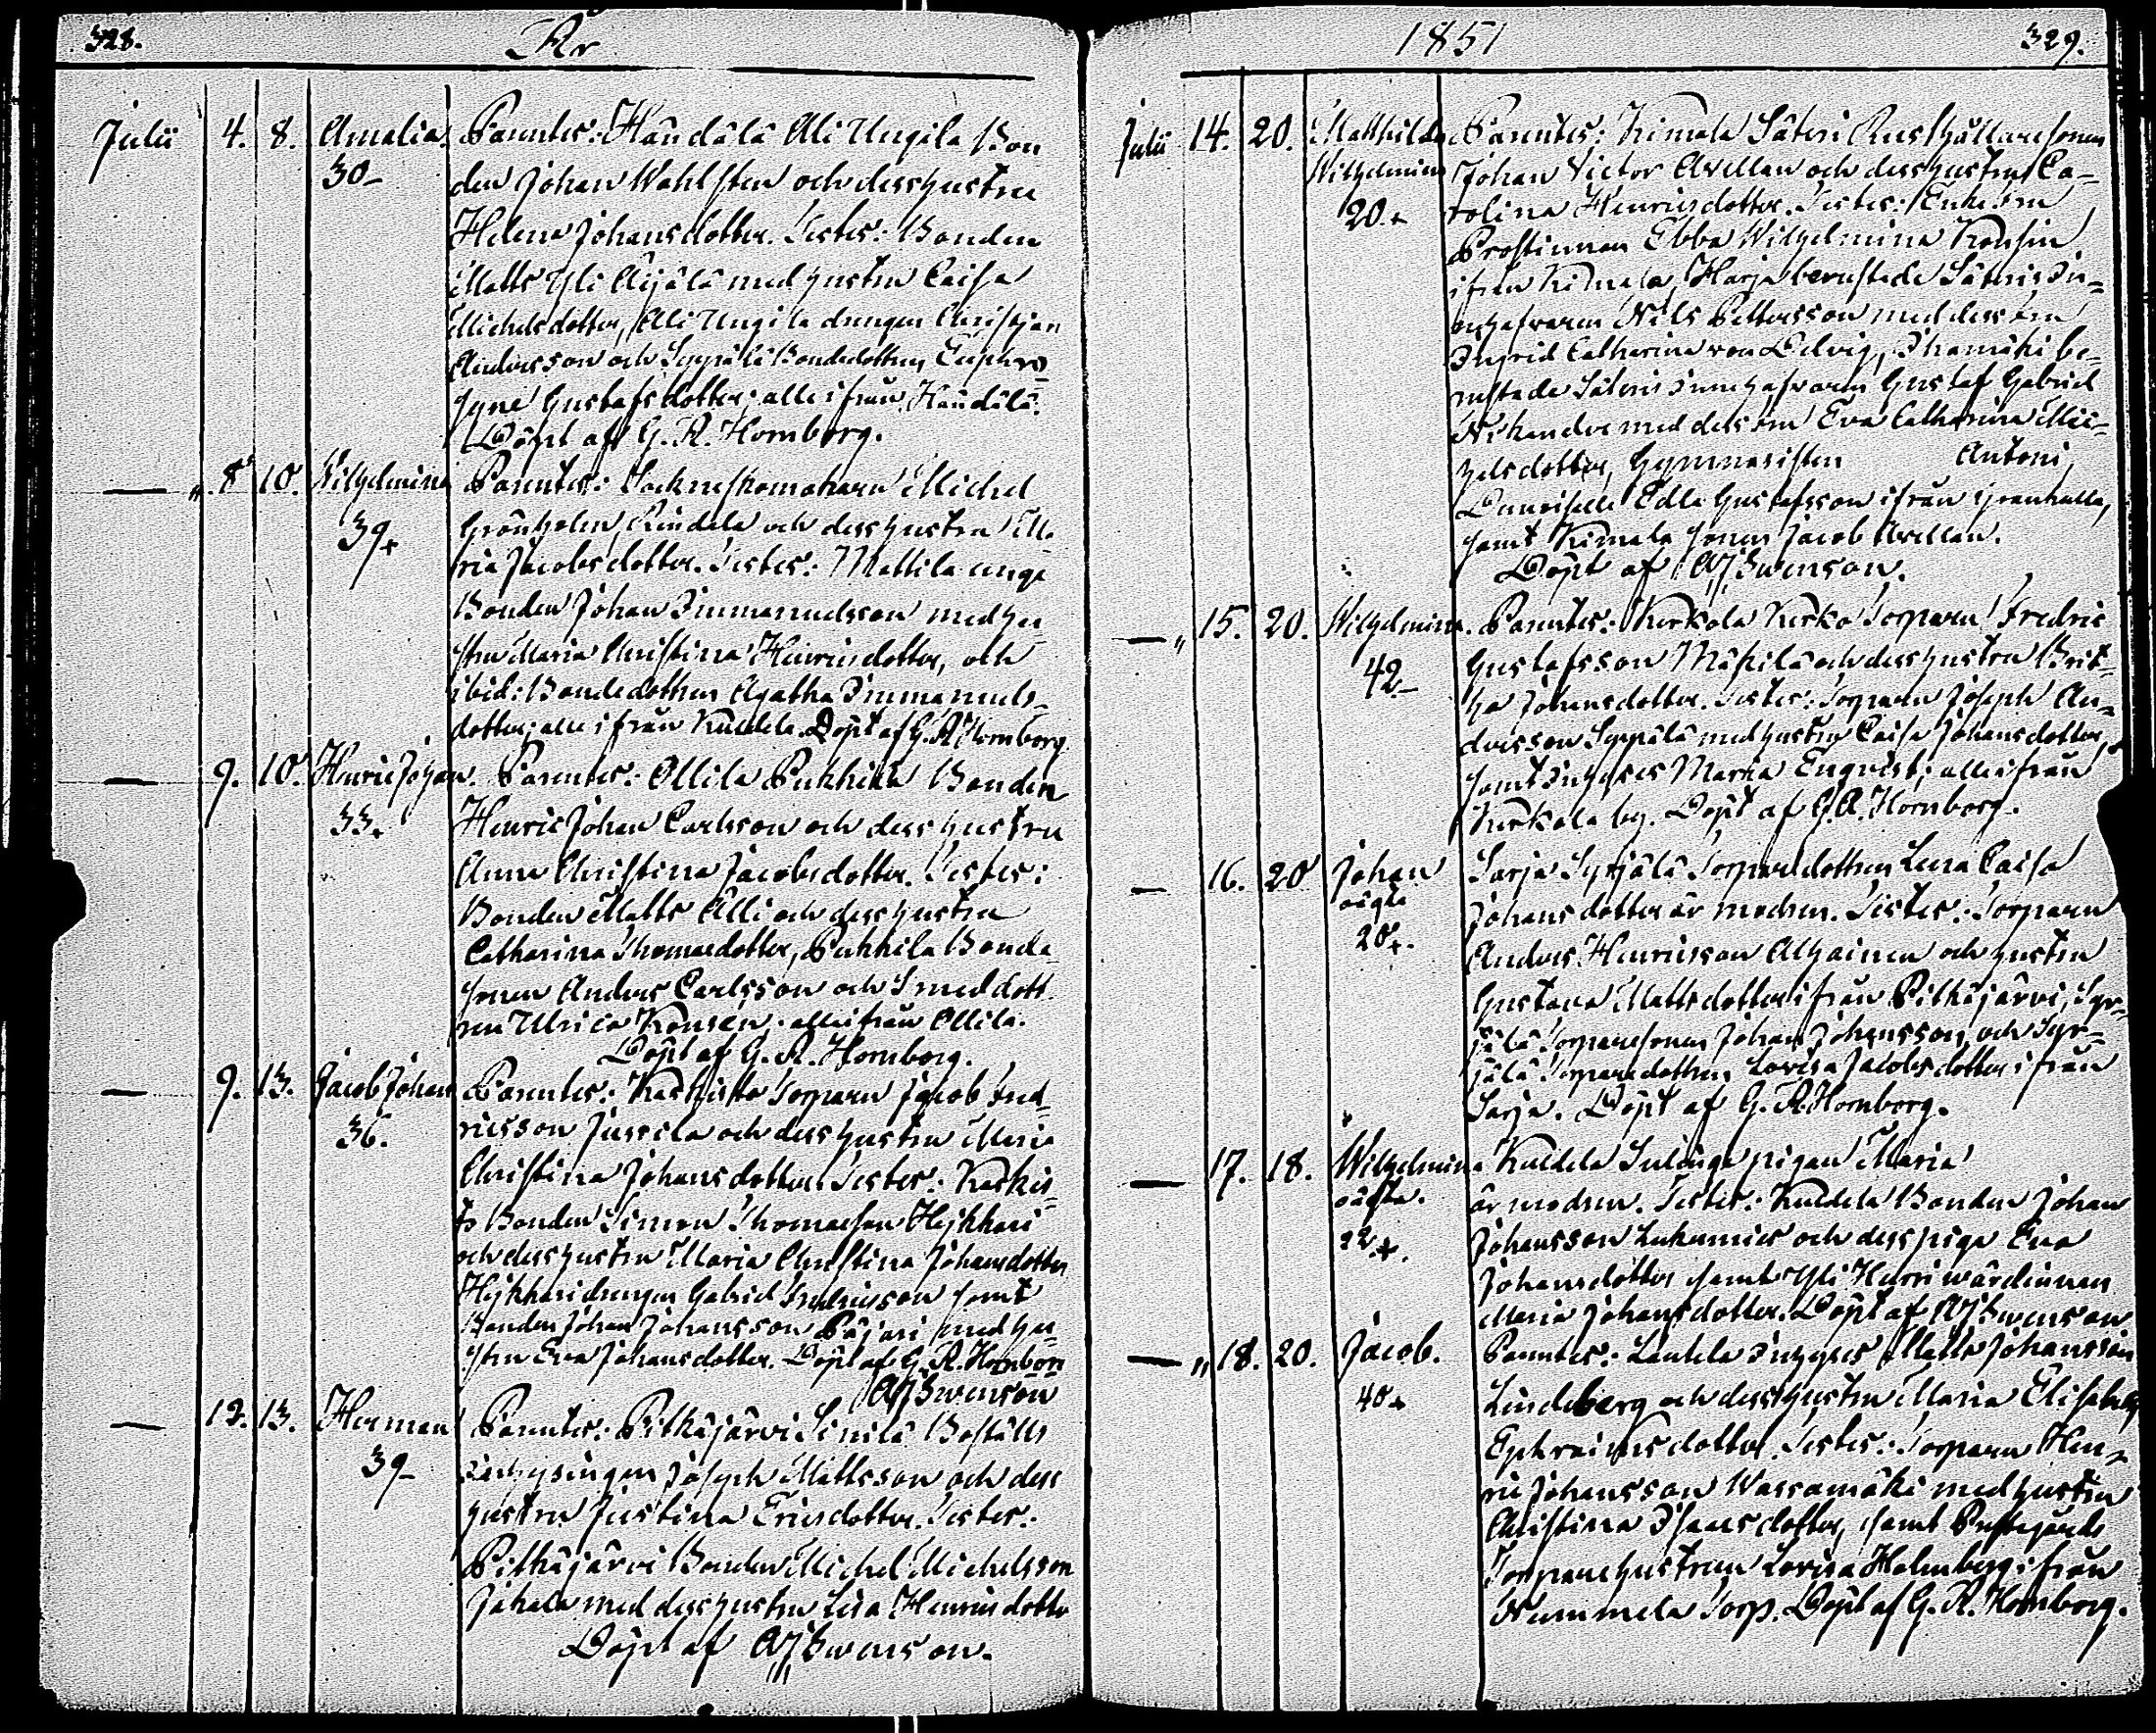 328.
År
Julii 4. 8. Amalia. Parentes: Haudälä Ali Uugila Bon
30 den Johan Wahlsten och dess hustru
Helena Johansdotter. Testes: Bonden
Matts Yli Äijälä med hustru Caisa
Michelsdotter, Ali Uugila drengen Christjan
Andersson och Seppälä Bondedottren Euphro
syne Gustafsdotter; alle ifrån Haudälä.
Döpt af G. A. Hornborg.
— „ 8 10. Wilhelmina Parentes: Sockneskomakaren Michel
39+ Grönholm, Rindela och dess hustru Ma
ria Jacobsdotter. Testes: Mattila unga
Bonden Johan Immanuelsson med hu
stru Maria Christina Henricsdotter, och
ibid: Bondedottren Agatha Immanuels
dotter; alle ifrån Kuldela. Döpt af G. A Hornborg
— 9. 10. Henric Johan. Parentes: Ollila Pukkila Bonden
33+ Henric Johan Carlsson och dess hustru
Anna Christina Jacobsdotter. Testes:
Bonden Matts Älli och dess hustru
Catharina Thomasdotter, Pukkila Bonde
sonen Anders Carlsson och Smeddott
ren Ulrica Konsén; alle ifrån Ollila.
Döpt af G. A. Hornborg.
— 9. 13. Jacob Johan Parentes: Karkisto Torparn Jacob Fred
36. ricsson Jussila och dess hustru Maria
Christina Johansdotter Testes: Karkis
to Bonden Simon Thomasson Hejkkari
och dess hustru Maria Christina Johansdotter
Hejkkari drengen Gabriel Fredricsson samt
Bonden Johan Johansson Päjari med hu
stru Eva Johansdotter. Döpt af G. A. Hornborg
AJ Swenson
— 12. 13. Herman Parentes: Pitkäjärvi Simila Boställs
39 inhysingen Joseph Mattsson och dess
hustru Justina Ericsdotter. Testes:
Pitkäjärvi Bonden Michel Michelsson
Jahala med dess hustru Lisa Henricsdotter
Döpt af AJ Swenson.
1851
329.
Julii 14. 20. Mathilda Parentes: Kimala Säteri Rusthållaresonen
Wilhelmina Johan Victor Avellan och dess hustru Ca-
20.+ rolina Henricsdotter. Testes: Enkefru
Prostinnan Ebba Wilhelmina Konsin
ifrån Kimala, Harja berustade Säteris in-
nehafvaren Nils Pettersson med dess fru
Ingrid Catharina von Delvig, Ihamäki be-
rustade Säteris innehafvaren Gustaf Gabriel
Nikander med dess fru Eva Catharina Mic-
helsdotter, Gymnasisten Antoni,
Demoiselle Edla Gustafsson ifrån
samt Kimala sonen Jacob Avellan.
Döpt af AJ Swenson.
— „ 15. 20. Wilhelmina. Parentes: Kerkola Kerko Torparn Fredric
42 Gustafsson Mäkilä och dess hustru Brit-
ha Johansdotter. Testes: Torparn Joseph An-
dersson Seppälä med hustru Caisa Johansdotter,
samt Inhyses Maria Enqvist; alle ifrån
Kerkola by. Döpt af G A. Hornborg.
— 16. 20 Johan Sarja Syrjälä Torparedottren Lena Caisa
oägta Johansdotter är modren. Testes: Torparn
20+. Anders Henricsson Alhainen och hustru
Gustava Mattsdotter ifrån Pitkäjärvi, Syr-
jälä Torparesonen Johan Johansson, och Syr-
jälä Torparedottren Lovisa Jacobsdotter ifrån
Sarja. Döpt af G. A. Hornborg.
— 17. 18. Wilhelmina Kuldela pigan Maria
oägta. är modren. Testes: Kuldela Bonden Johan
22+. Johansson Lukumies och dess piga Eva
Johansdotter samt Yli Hurri wärdinnan
Maria Johansdotter. Döpt af AJ Swenson
— „ 18. 20. Jacob. Parentes: Lautela Inhyses Matts Johansson
40+ Lindeberg och dess hustru Maria Elisabeth
Ephraimsdotter. Testes: Torparn Hen-
ric Johansson Wassamäki med hustru
Christina Isaacsdotter, samt Prestegårds
Torparehustrun Lovisa Holmberg ifrån
Nummela Torp. Döpt af G. A. Hornborg.